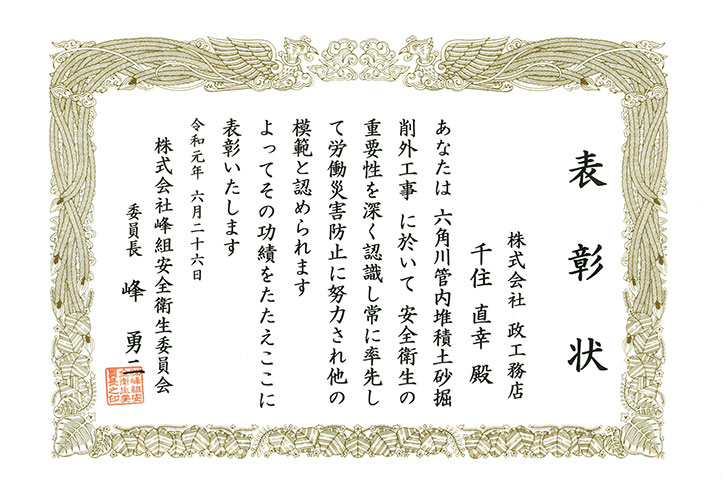 表彰状
株式会社 政工務店
千住 直幸 殿
あなたは 六角川管内堆積土砂掘
削外工事 に於いて 安全衛生の
重要性を深く認識し常に率先し
て労働災害防止に努力され他の
模範と認められます
よってその功績をたたえここに
表彰いたします
令和元年 六月二十六日
株式会社峰組安全衛生委員会
委員長 峰 勇二